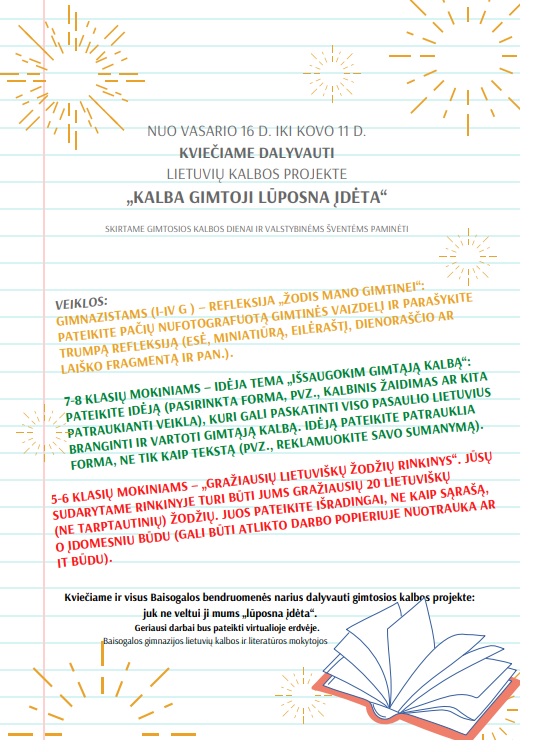 NUO VASARIO 16 D. IKI KOVO 11 D.
KVIEČIAME DALYVAUTI
LIETUVIŲ KALBOS PROJEKTE
„KALBA GIMTOJI LŪPOSNA ĮDĖTA“
SKIRTAME GIMTOSIOS KALBOS DIENAI IR VALSTYBINĖMS ŠVENTĖMS PAMINĖTI
VEIKLOS:
GIMNAZISTAMS (I-IV G ) – REFLEKSIJA „ŽODIS MANO GIMTINEI“:
PATEIKITE PAČIŲ NUFOTOGRAFUOTĄ GIMTINĖS VAIZDELĮ IR PARAŠYKITE
TRUMPĄ REFLEKSIJĄ (ESĖ, MINIATIŪRĄ, EILĖRAŠTĮ, DIENORAŠČIO AR
LAIŠKO FRAGMENTĄ IR PAN.).
7-8 KLASIŲ MOKINIAMS – IDĖJA TEMA „IŠSAUGOKIM GIMTĄJĄ KALBĄ“:
PATEIKITE IDĖJĄ (PASIRINKTA FORMA, PVZ., KALBINIS ŽAIDIMAS AR KITA
PATRAUKIANTI VEIKLA), KURI GALI PASKATINTI VISO PASAULIO LIETUVIUS
BRANGINTI IR VARTOTI GIMTĄJĄ KALBĄ. IDĖJĄ PATEIKITE PATRAUKLIA
FORMA, NE TIK KAIP TEKSTĄ (PVZ., REKLAMUOKITE SAVO SUMANYMĄ).
5-6 KLASIŲ MOKINIAMS – „GRAŽIAUSIŲ LIETUVIŠKŲ ŽODŽIŲ RINKINYS“. JŪSŲ
SUDARYTAME RINKINYJE TURI BŪTI JUMS GRAŽIAUSIŲ 20 LIETUVIŠKŲ
(NE TARPTAUTINIŲ) ŽODŽIŲ. JUOS PATEIKITE IŠRADINGAI, NE KAIP SĄRAŠĄ,
O ĮDOMESNIU BŪDU (GALI BŪTI ATLIKTO DARBO POPIERIUJE NUOTRAUKA AR
IT BŪDU).
Kviečiame ir visus Baisogalos bendruomenės narius dalyvauti gimtosios kalbos projekte:
juk ne veltui ji mums „lūposna įdėta“.
Geriausi darbai bus pateikti virtualioje erdvėje.
Baisogalos gimnazijos lietuvių kalbos ir literatūros mokytojos